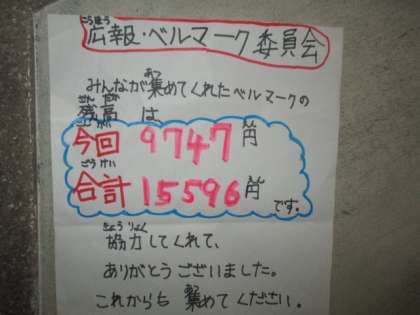 こうほう
広報・ベルマーク委員会
みんなが集めてくれたベルマークの
残高は、
今回 9747円
ごうけい
合計 15596円です。
きょうりょく
協力してくれて、
ありがとうございました。
これからも集めてください。